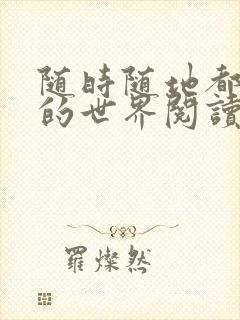 随時随地都
的世界閱讀
羅燦然